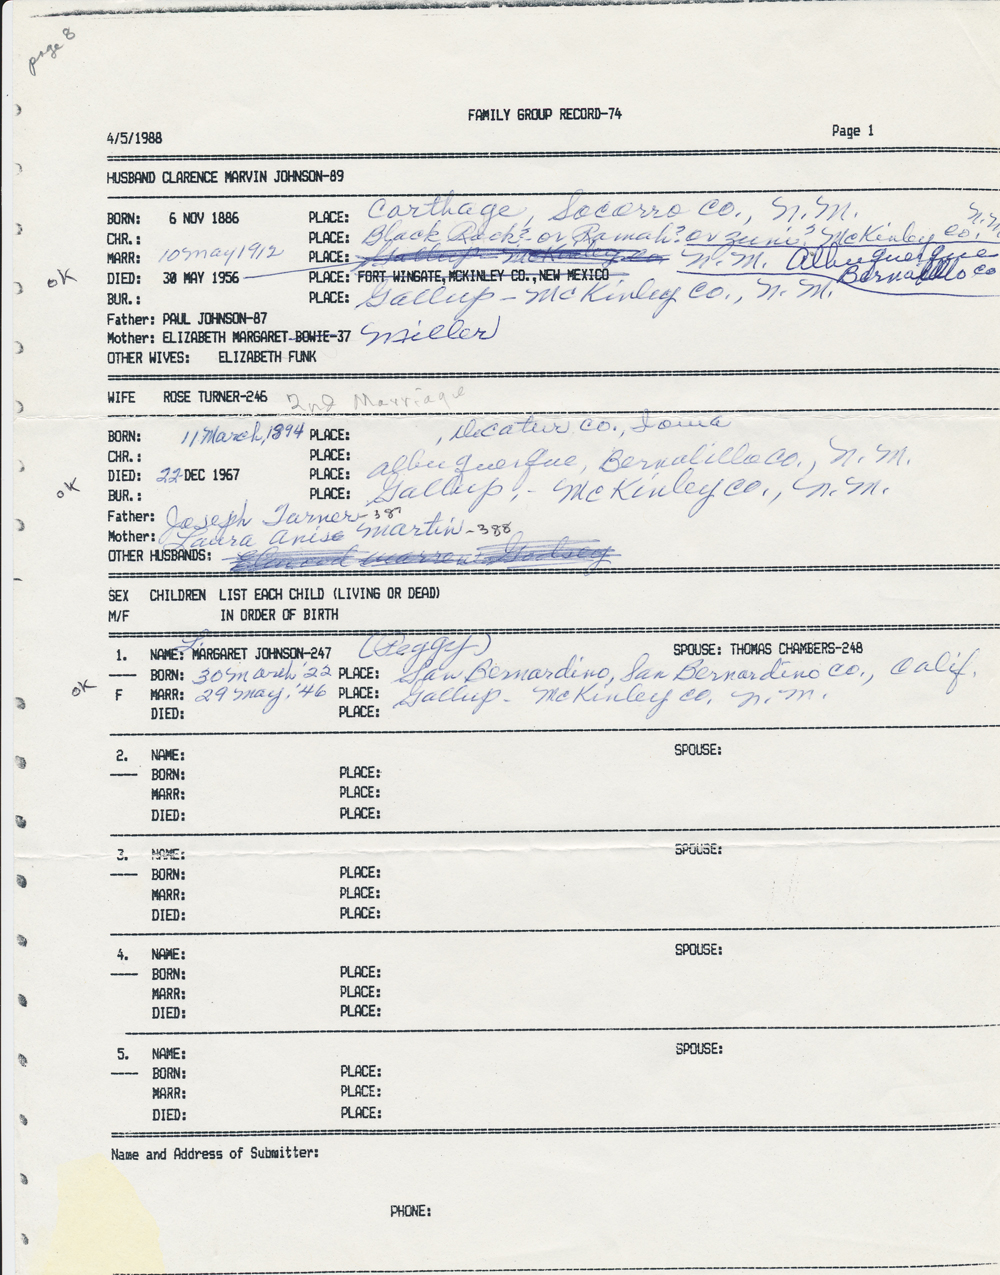 page 8
FAMILY GROUP RECORD-74
4/5/1988 Page 1
HUSBAND CLARENCE MARVIN JOHNSON-89
BORN: 6 NOV 1886 PLACE: Carthage, Socorro Co., N.M.
CHR.: PLACE: Black Rock? or Ramah? or Zuni? McKinley Co. N.M.
MARR: 10 May 1912 PLACE: Gallup - McKinley Co N.M. Albuquerque
DIED: 30 MAY 1956 PLACE: FORT WINGATE, MCKINLEY CO., NEW MEXICO Bernalillo Co
OK
BUR.: PLACE: Gallup - McKinley Co., N.M.
Father: PAUL JOHNSON-87
Mother: ELIZABETH MARGARET BOWIE-37 Miller
OTHER WIVES: ELIZABETH FUNK
WIFE ROSE TURNER-246 2nd Marriage
BORN: 11 March, 1894 PLACE: , Decatur Co., Iowa
CHR.: PLACE:
DIED: 22 DEC 1967 PLACE: Albuquerque, Bernalillo Co., N.M.
OK
BUR.: PLACE: Gallup, - McKinley Co., N.M.
Father: Joseph Turner-387
Mother: Laura Anise Martin-388
OTHER HUSBANDS:
SEX CHILDREN LIST EACH CHILD (LIVING OR DEAD)
M/F IN ORDER OF BIRTH
1. NAME: L. MARGARET JOHNSON-247 (Peggy) SPOUSE: THOMAS CHAMBERS-248
BORN: 30 March '22 PLACE: San Bernardino, San Bernardino Co., Calif.
OK
F MARR: 29 May, '46 PLACE: Gallup - McKinley Co. N.M.
DIED: PLACE:
2. NAME: SPOUSE:
BORN: PLACE:
MARR: PLACE:
DIED: PLACE:
3. NAME: SPOUSE:
BORN: PLACE:
MARR: PLACE:
DIED: PLACE:
4. NAME: SPOUSE:
BORN: PLACE:
MARR: PLACE:
DIED: PLACE:
5. NAME: SPOUSE:
BORN: PLACE:
MARR: PLACE:
DIED: PLACE:
Name and Address of Submitter:
PHONE: